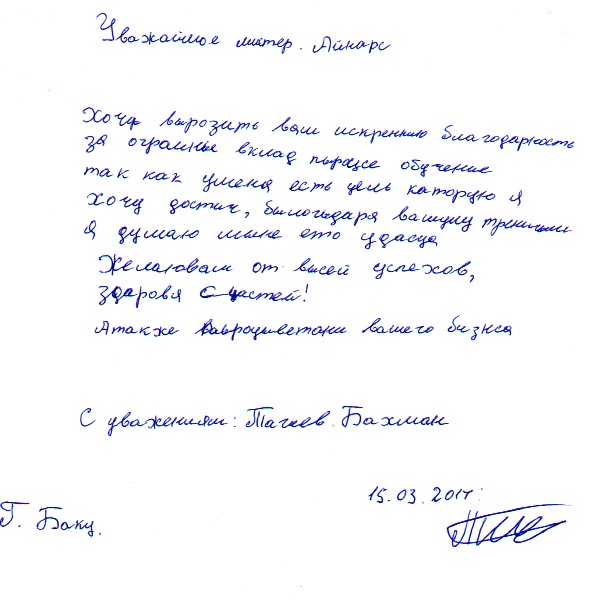 Уважаймое мистер. Айнарс
Хочу вырозить вам искреннию благодарность
за ограмные вклад обучение
так как уменя есть цель каторую я
хочу достич, былогыдаря вашиму
я думаю мине ето удасца
Желаювам от высей успехов,
здаровя счастей!
Атакже вашего бизнса
С уважениям: Тагиев. Бахман
15.03.2017г
Г. Баку.